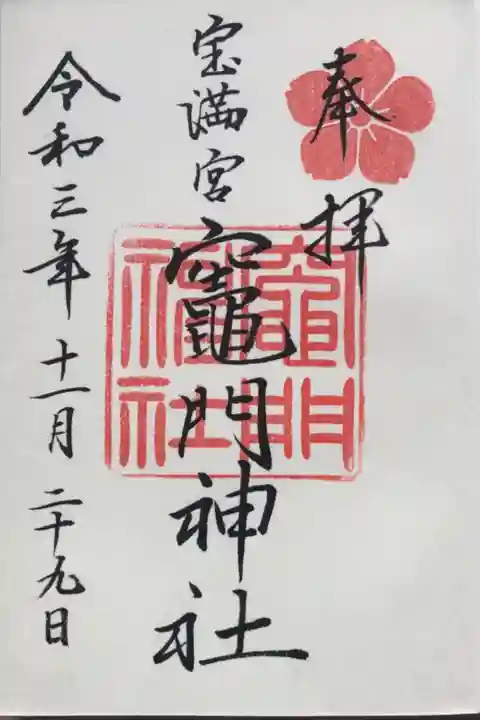 奉拝
宝満宮
竈門神社
令和三年十一月二十九日
竈門
神社